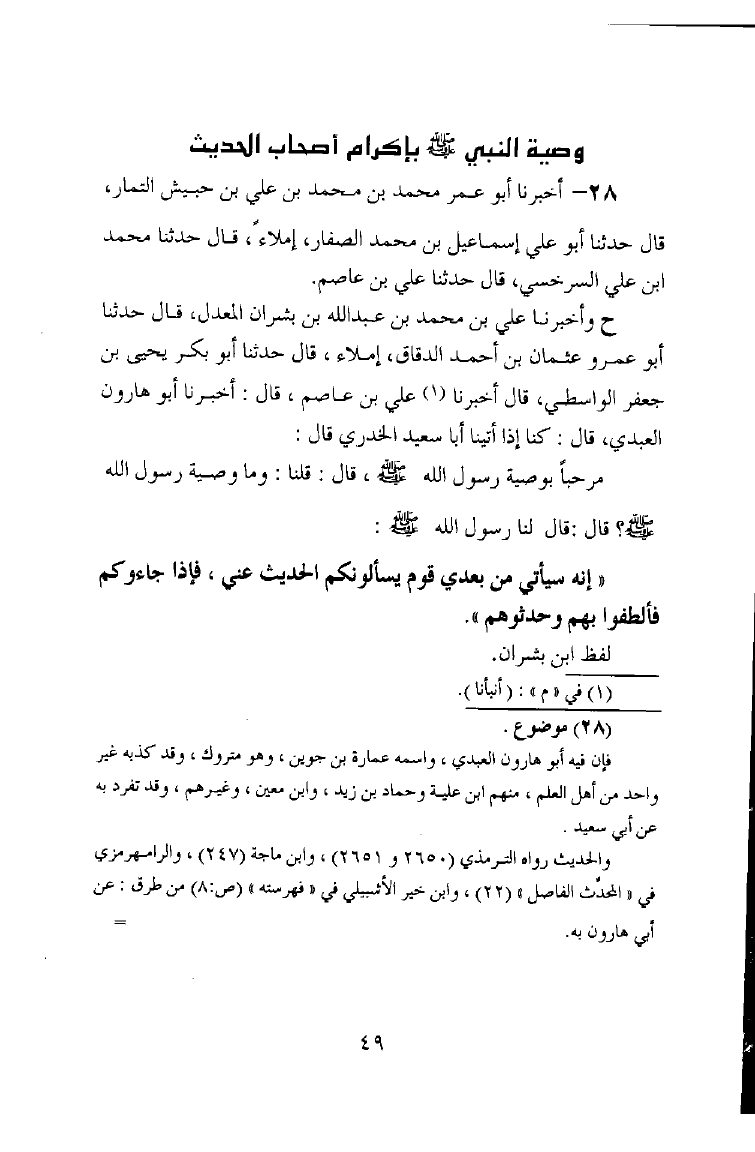 وصية النبي ﷺ بإكرام أصحاب الحديث
٢٨- أخبرنا أبو عمر محمد بن محمد بن علي بن حبيش التمار،
قال حدثنا أبو علي إسماعيل بن محمد الصفار، إملاءً، قال حدثنا محمد
ابن علي السرخسي، قال حدثنا علي بن عاصم.
ح وأخبرنا علي بن محمد بن عبدالله بن بشران المعدل، قال حدثنا
أبو عمرو عثمان بن أحمد الدقاق، إملاء، قال حدثنا أبو بكر يحيى بن
جعفر الواسطي، قال أخبرنا (١) علي بن عاصم، قال : أخبرنا أبو هارون
العبدي، قال : كنا إذا أتينا أبا سعيد الخدري قال :
مرحباً بوصية رسول الله ﷺ ، قال : قلنا : وما وصية رسول الله
ﷺ؟ قال :قال لنا رسول الله ﷺ :
« إنه سيأتي من بعدي قوم يسألونكم الحديث عني ، فإذا جاءوكم
فألطفوا بهم وحدثوهم ».
لفظ ابن بشران.
(١) في « م » : ( أنبأنا ).
(٢٨) موضوع .
فإن فيه أبو هارون العبدي ، واسمه عمارة بن جوين ، وهو متروك ، وقد كذبه غير
واحد من أهل العلم ، منهم ابن علية وحماد بن زيد ، وابن معين ، وغيرهم ، وقد تفرد به
عن أبي سعيد .
والحديث رواه الترمذي (٢٦٥٠ و ٢٦٥١) ، وابن ماجة (٢٤٧) ، والرامهرمزي
في « المحدِّث الفاصل » (٢٢) ، وابن خير الأشبيلي في « فهرسته » (ص:٨) من طرق : عن
أبي هارون به.
=
٤٩